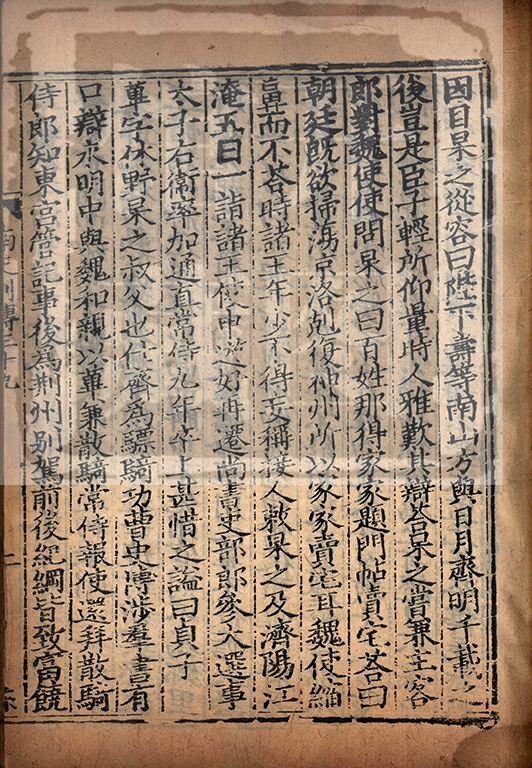 因目杲之從容曰陛下壽等南山方與日月齊明千載之
後豈是臣子輕所仰量時人雅歎其辯荅杲之嘗兼主客
郎對魏使使問杲之曰百姓那得家家題門帖賣宅荅曰
朝廷旣欲掃蕩京洛剋復神州所以家家賣宅耳魏使縮
鼻而不荅時諸王年少不得妄稱接人敕杲之及濟陽江
淹五日一詣諸王使申遊好再遷尚書吏部郎參大選事
太子右衛率加通直常侍九年卒上甚惜之謚曰貞子
蓽字休野杲之叔父也仕齊爲驃騎功曹史博涉羣書有
口辯永明中與魏和親以蓽兼散騎常侍報使還拜散騎
侍郎知東宮管記事後爲荆州别駕前後紀綱皆致富饒
南史列傳三十九 二